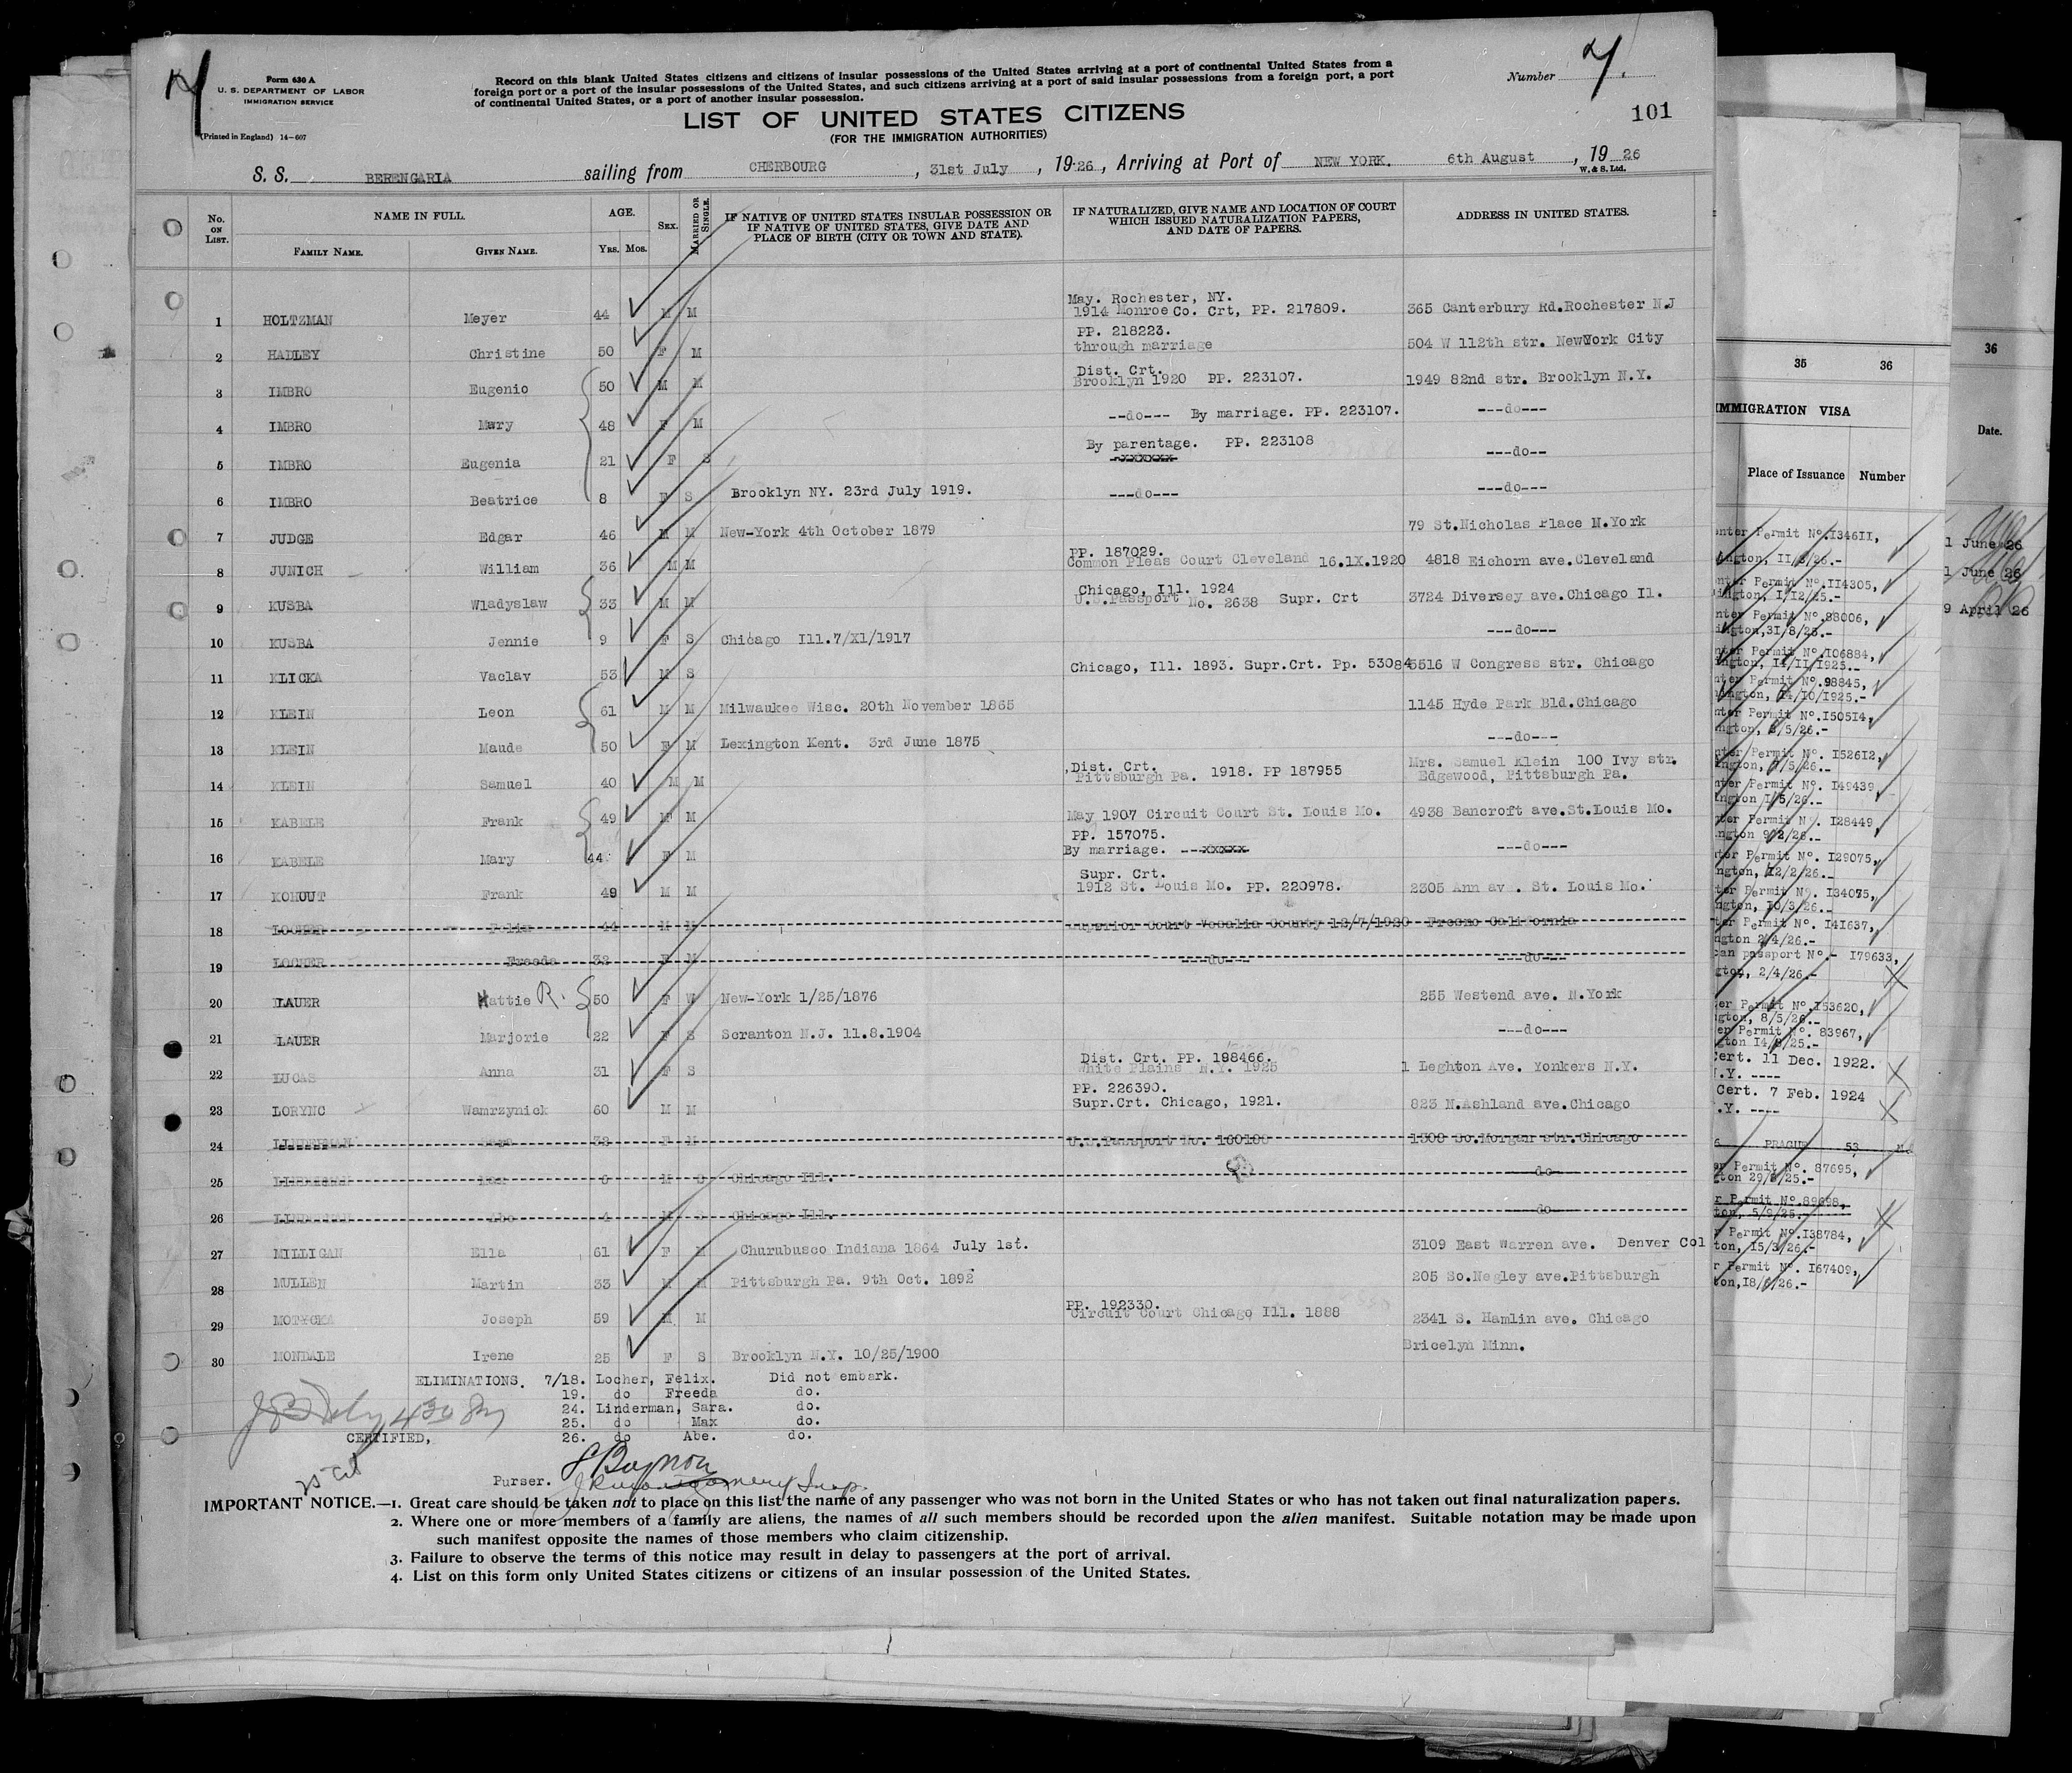 Form 630 A
U. S. DEPARTMENT OF LABOR
IMMIGRATION SERVICE
(Printed in England) 14-607
Record on this blank United States citizens and citizens of insular possessions of the United States arriving at a port of continental United States from a
foreign port or a port of the insular possessions of the United States, and such citizens arriving at a port of said insular possessions from a foreign port, a port
of continental United States, or a port of another insular possession.
Number
101
LIST OF UNITED STATES CITIZENS
(FOR THE IMMIGRATION AUTHORITIES)
S. S. BERENGARIA sailing from CHERBOURG, 31st July, 1926, Arriving at Port of NEW YORK. 6th August, 1926
W. & S. Ltd.
No. ON LIST. NAME IN FULL. FAMILY NAME. GIVEN NAME. AGE. YRS. MOS. SEX. MARRIED OR SINGLE. IF NATIVE OF UNITED STATES INSULAR POSSESSION OR IF NATIVE OF UNITED STATES, GIVE DATE AND PLACE OF BIRTH (CITY OR TOWN AND STATE). IF NATURALIZED, GIVE NAME AND LOCATION OF COURT WHICH ISSUED NATURALIZATION PAPERS, AND DATE OF PAPERS. ADDRESS IN UNITED STATES.
May. Rochester, NY.
1 HOLTZMAN Meyer 44 M M 1914 Monroe Co. Crt, PP. 217809. 365 Canterbury Rd.Rochester N.J
PP. 218223.
2 HADLEY Christine 50 F M through marriage 504 W 112th str. NewYork City
Dist. Crt.
3 IMBRO Eugenio 50 M M Brooklyn 1920 PP. 223107. 1949 82nd str. Brooklyn N.Y.
4 IMBRO Mary 48 F M --do--- By marriage. PP. 223107. ---do---
By parentage. PP. 223108
5 IMBRO Eugenia 21 F S -xxxxxx- ---do--
6 IMBRO Beatrice 8 F S Brooklyn NY. 23rd July 1919. ---do--- ---do---
7 JUDGE Edgar 46 M M New-York 4th October 1879 79 St.Nicholas Place N.York
PP. 187029.
8 JUNICH William 36 M M Common Pleas Court Cleveland 16.1X.1920 4818 Eichorn ave.Cleveland
Chicago, Ill. 1924
9 KUSBA Wladyslaw 33 M M U.S.Passport No. 2638 Supr. Crt 3724 Diversey ave.Chicago Il.
10 KUSBA Jennie 9 F S Chicago Ill.7/X1/1917 ---do---
11 KLICKA Vaclav 53 M S Chicago, Ill. 1893. Supr.Crt. Pp. 53084 5516 W Congress str. Chicago
12 KLEIN Leon 61 M M Milwaukee Wisc. 20th November 1865 1145 Hyde Park Bld.Chicago
13 KLEIN Maude 50 F M Lexington Kent. 3rd June 1875 ---do---
Dist. Crt. Mrs. Samuel Klein 100 Ivy str.
14 KLEIN Samuel 40 M M Pittsburgh Pa. 1918. PP 187955 Edgewood, Pittsburgh Pa.
15 KABELE Frank 49 M M May 1907 Circuit Court St. Louis Mo. 4938 Bancroft ave.St.Louis Mo.
PP. 157075.
16 KABELE Mary 44 F M By marriage. --xxxxx- ---do---
Supr. Crt.
17 KOHOUT Frank 49 M M 1912 St. Louis Mo. PP. 220978. 2305 Ann av . St. Louis Mo.
18 LOCHER Felix 44 M M Superior Court Vesalia County 12/7/1920 Fresno California
19 LOCHER Freeda 32 F M ---do--- ---do---
20 LAUER Hattie R. 50 F W New-York 1/25/1876 255 Westend ave. N.York
21 LAUER Marjorie 22 F S Scranton N.J. 11.8.1904 ---do---
Dist. Crt. PP. 198466.
22 LUCAS Anna 31 F S White Plains N.Y. 1925 1 Leghton Ave. Yonkers N.Y.
PP. 226390.
23 LORYNC Wamrzynick 60 M M Supr.Crt. Chicago, 1921. 823 N.Ashland ave.Chicago
24 LINDERMAN Sara 32 F M U.S.Passport No. 1300 So.Morgan str.Chicago
25 M S Chicago Ill. do
26 LINDERMAN Abe 4 M S Chicago Ill. do
27 MILLIGAN Ella 61 F M Churubusco Indiana 1864 July 1st. 3109 East Warren ave. Denver Col
28 MULLEN Martin 33 M M Pittsburgh Pa. 9th Oct. 1892 205 So.Negley ave.Pittsburgh
PP. 192330.
29 MOTYCKA Joseph 59 M M Circuit Court Chicago Ill. 1888 2341 S. Hamlin ave. Chicago
30 MONDALE Irene 25 F S Brooklyn N.Y. 10/25/1900 Bricelyn Minn.
ELIMINATIONS. 7/18. Locher, Felix. Did not embark.
19. do Freeda do.
24. Linderman, Sara. do.
25. do Max do.
CERTIFIED, 26. do Abe. do.
Purser.
IMPORTANT NOTICE.—1. Great care should be taken not to place on this list the name of any passenger who was not born in the United States or who has not taken out final naturalization papers.
2. Where one or more members of a family are aliens, the names of all such members should be recorded upon the alien manifest. Suitable notation may be made upon
such manifest opposite the names of those members who claim citizenship.
3. Failure to observe the terms of this notice may result in delay to passengers at the port of arrival.
4. List on this form only United States citizens or citizens of an insular possession of the United States.
35 36
IMMIGRATION VISA
Place of Issuance Number
Permit No.I34611,
Permit No.II4305,
Permit No.88006,
Permit No.I06884,
Permit No.98845,
Permit No.I50514,
Permit No. I52612,
Permit No. I49439
Permit N . I28449
Permit No. I29075,
Permit No. I34075,
Permit No. I41637,
passport No.- I79633,
2/4/26.-
Permit No.I53620,
8/5/26.-
Permit No. 83967,
Cert. 11 Dec. 1922.
.Y. ----
Cert. 7 Feb. 1924
.Y. ----
PRAGUE 53
Permit No. 87695,
Permit No.89698,
Permit No.I38784,
Permit No. I67409,
36
Date.
1 June 26
1 June 26
9 April 26